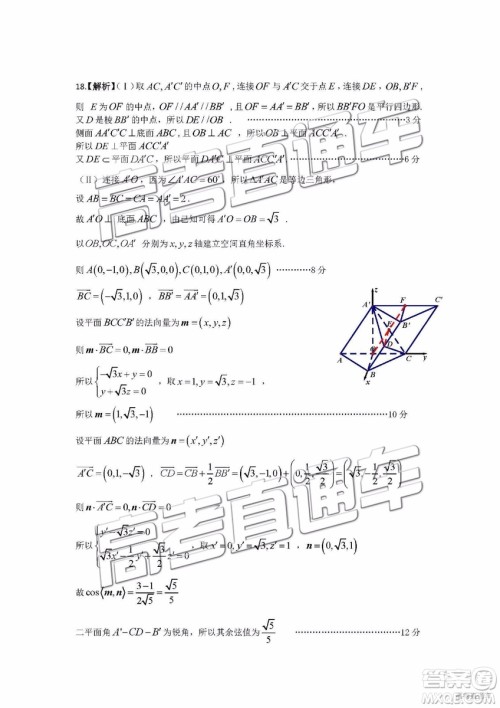 18.【解析】(Ⅰ)取 AC, A′C′ 的中点 O, F ,连接 OF 与 A′C 交于点 E ,连接 DE , OB, B′F ,
则 E 为 OF 的中点, OF // AA′ // BB′ ,且 OF = AA′ = BB′ ,所以 BB′FO 是平行四边形.
又 D 是棱 BB′ 的中点,所以 DE // OB . …………3 分
侧面 AA′C′C ⊥ 底面 ABC ,且 OB ⊥ AC ,所以 OB ⊥ 平面 ACC′A′ .
所以 DE ⊥ 平面 ACC′A′
又 DE ⊂ 平面 DA′C ,所以平面 DA′C ⊥ 平面 ACC′A′ …………6 分
(Ⅱ)连接 A′O ,因为 ∠A′AC = 60° ,所以 △A′AC 是等边三角形.
设 AB = BC = CA = AA′ = 2 .
故 A′O ⊥ 底面 ABC ,由已知可得 A′O = OB = √3 .
以 OB, OC, OA′ 分别为 x, y, z 轴建立空间直角坐标系.
则 A(0,-1,0), B(√3,0,0), C(0,1,0), A′(0,0,√3) …………8 分
BC = (-√3,1,0) , BB′ = AA′ = (0,1,√3)
设平面 BCC′B′ 的法向量为 m = (x, y, z)
则 m·BC = 0, m·BB′ = 0
所以 { -√3x + y = 0
y + √3z = 0 ,取 x = 1, y = √3, z = -1 ,
所以 m = (1, √3, -1) …………10 分
设平面 A′DC 的法向量为 n = (x′, y′, z′)
A′C = (0,1,-√3) , CD = CB + 1/2 BB′ = (√3,-1,0) + (0, 1/2, √3/2) = (√3, -1/2, √3/2)
则 n·A′C = 0, n·CD = 0
所以 { y′ - √3z′ = 0
√3x′ - 1/2 y′ + √3/2 z′ = 0 ,取 x′ = 0, y′ = √3, z′ = 1 , n = (0, √3, 1)
故 cos⟨m, n⟩ = (3-1)/(2√5) = √5/5
二平面角 A′-CD-B′ 为锐角,所以其余弦值为 √5/5 …………12 分
z
A′
F
C′
B′
E
D
A
C
y
B
x
高考直通车
高考直通车